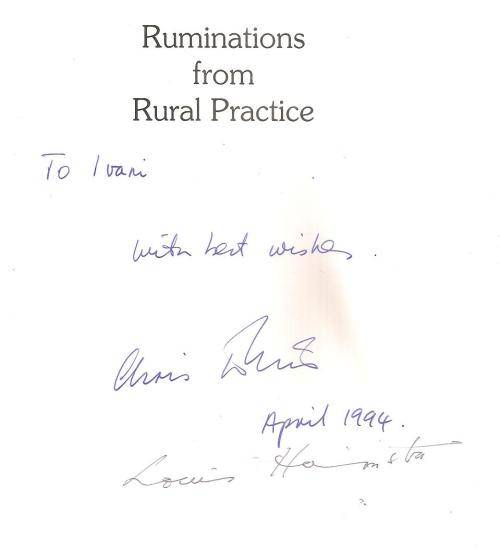 Ruminations
from
Rural Practice
To Ivani
with best wishes.
Chris
April 1994.
Louis